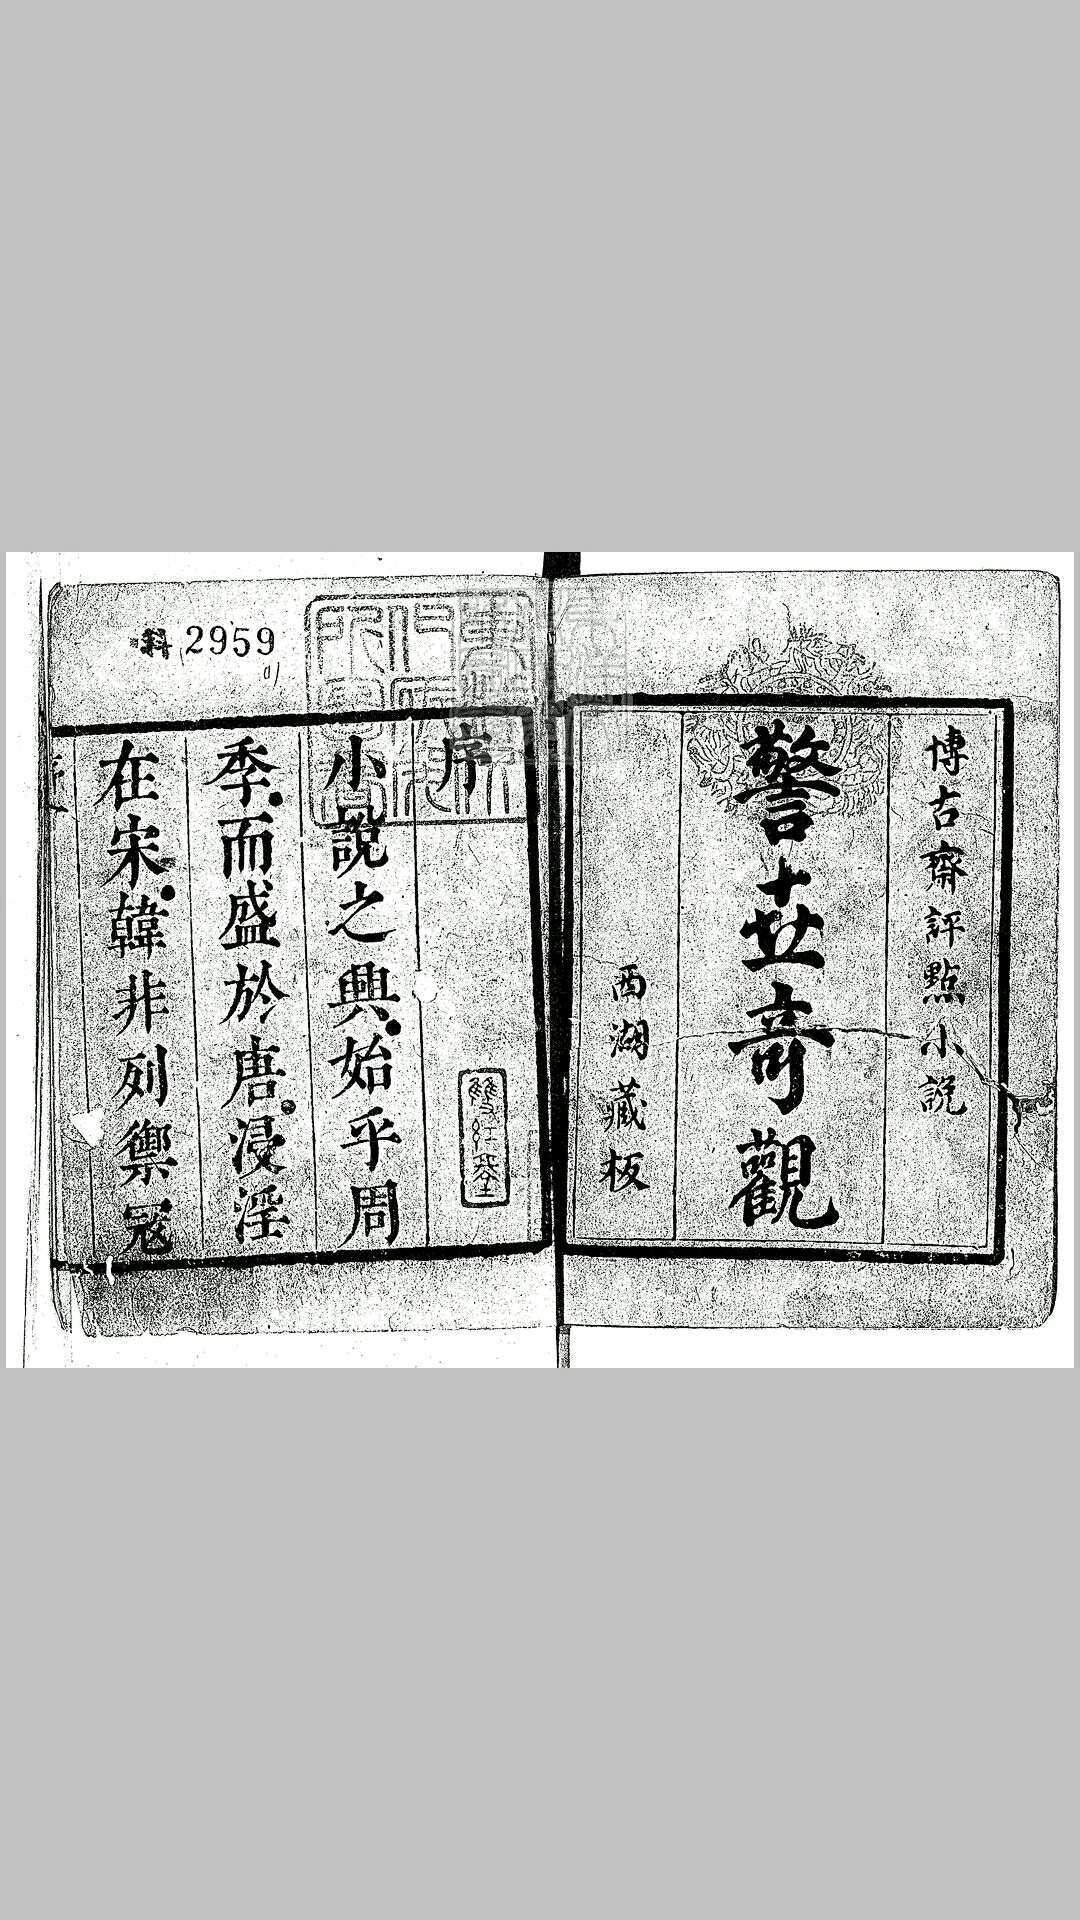 博古齋評點小說
警世奇觀
西湖藏板
序
雙紅堂
小說之興始乎周
季而盛於唐浸淫
在宋韓非列禦寇
2959